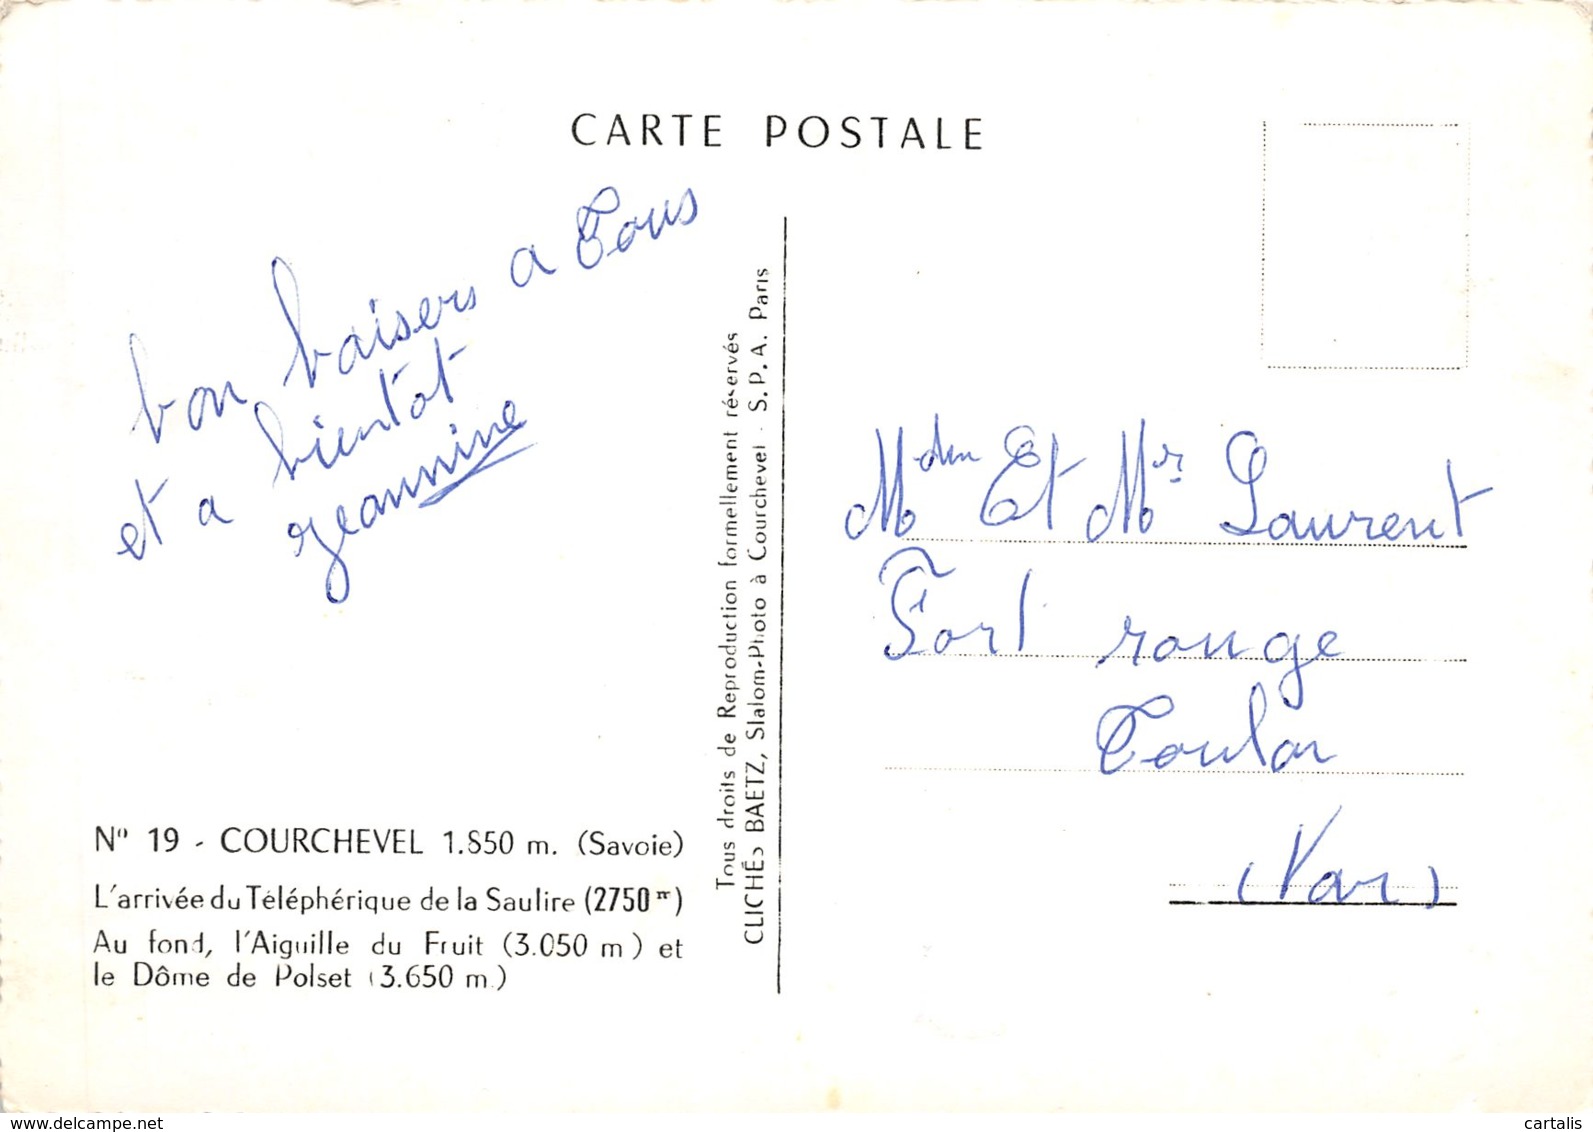 CARTE POSTALE
bon baisers a Tous
et a bientot
jeannine
N° 19 - COURCHEVEL 1.850 m. (Savoie)
L'arrivée du Téléphérique de la Saulire (2750 m)
Au fond, l'Aiguille du Fruit (3.050 m) et
le Dôme de Polset (3.650 m.)
Tous droits de Reproduction formellement réservés
CLICHÉS BAETZ, Slalom-Photo à Courchevel - S. P. A. Paris
Mdm Et Mr Laurent
Fort rouge
Toulon
(Var)
www.delcampe.net
cartalis